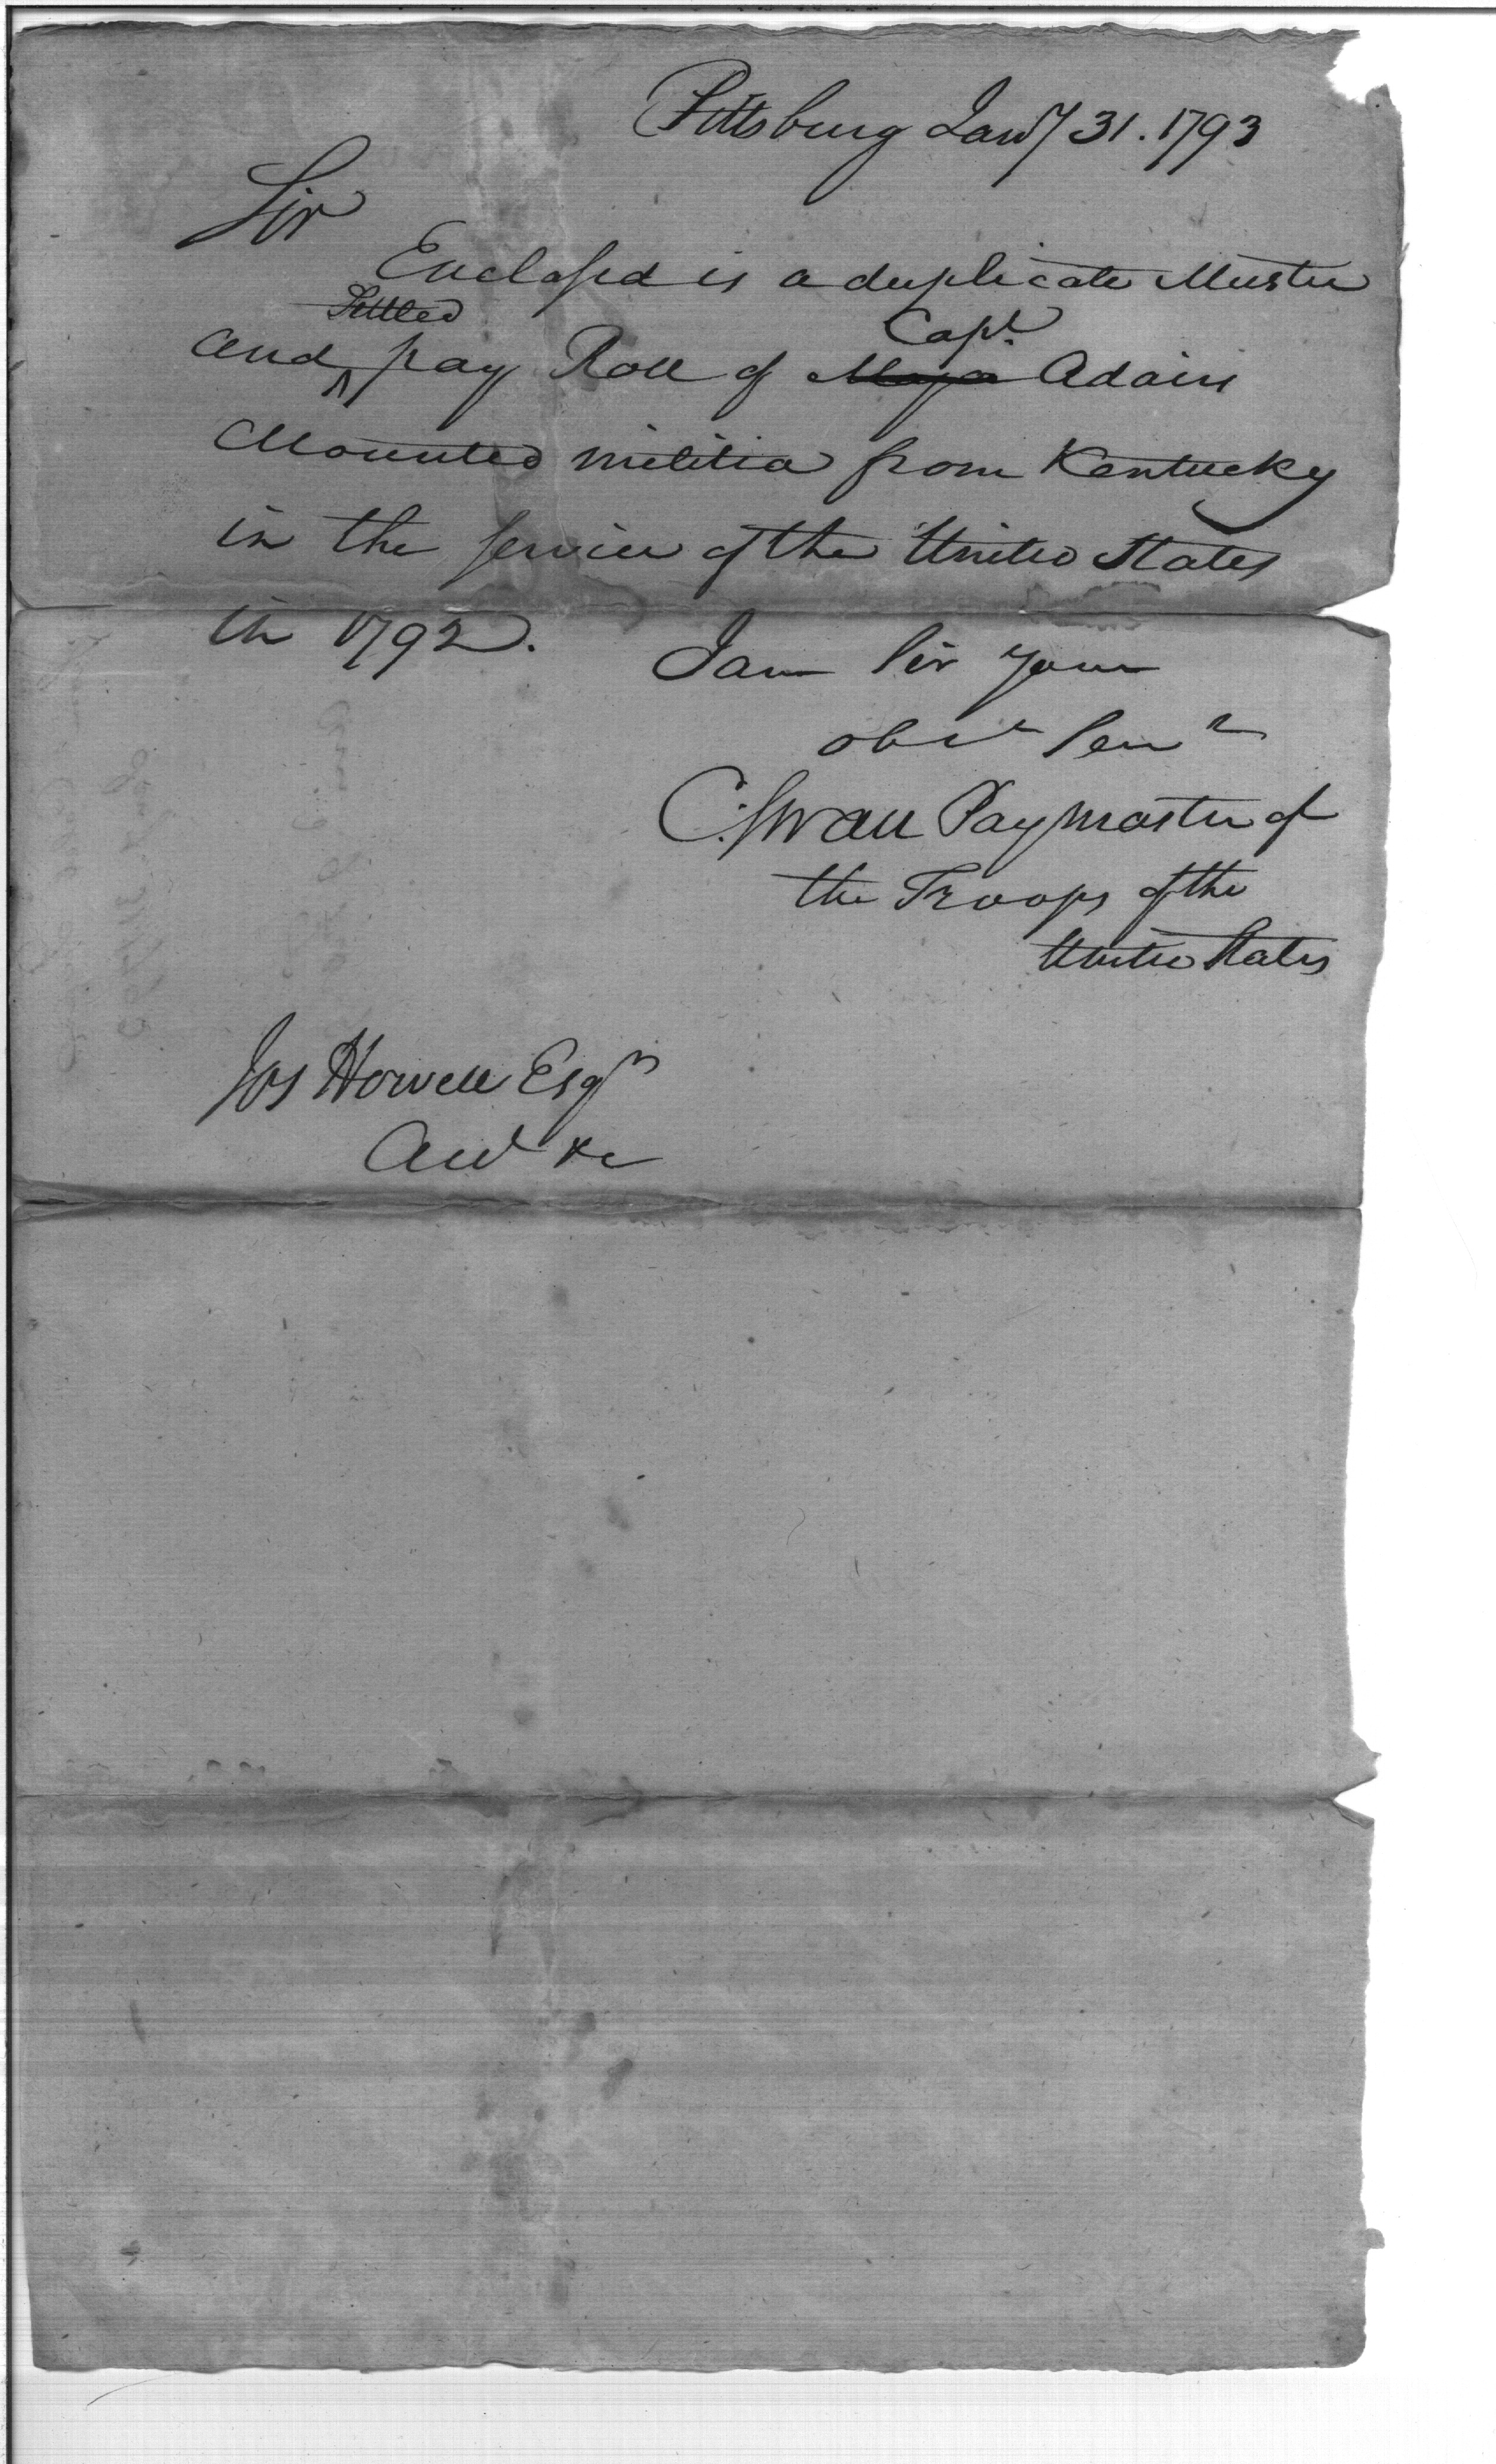 Pittsburg Jany 31. 1793
Sir
Enclosed is a duplicate Muster
Settled Capt.
and pay Roll of Majr Adairs
Mounted militia from Kentucky
in the service of the United States
in 1792.
I am Sir your
obt Sert
C. Swan Paymaster of
the Troops of the
United States
Jos Howell Esqr
Acct &c